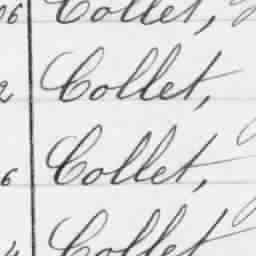 06 Collet,
2 Collet,
6 Collet,
Collet